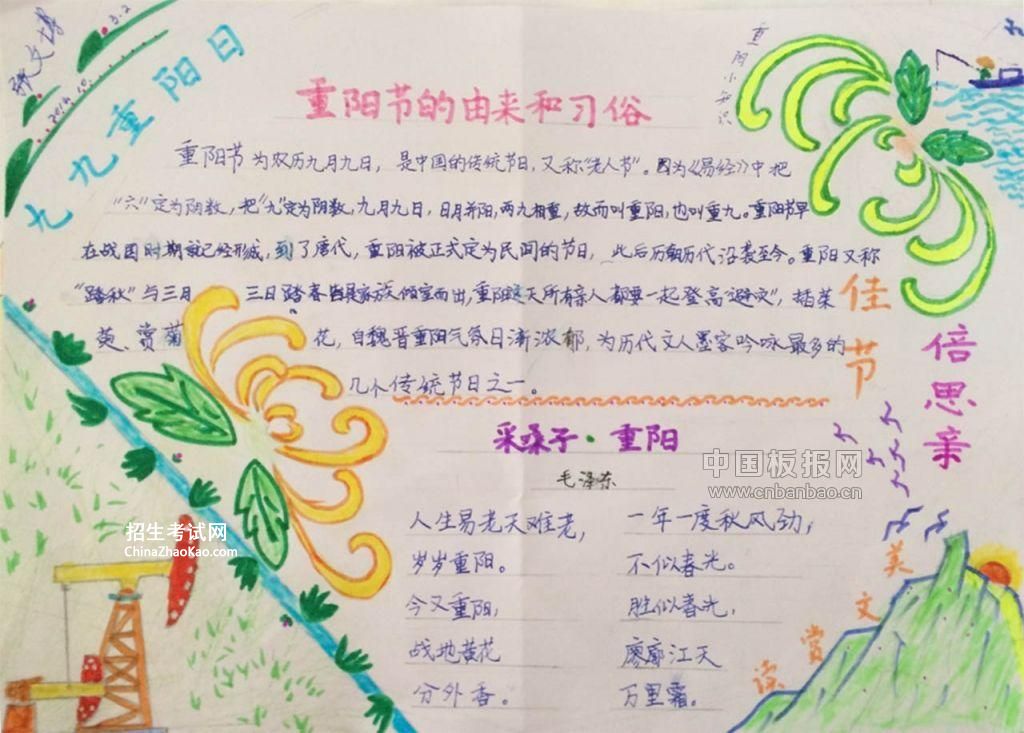 张文博
3.2
2014.10.
九九重阳日
重阳小知识
重阳节的由来和习俗
重阳节为农历九月九日，是中国的传统节日，又称“老人节”。因为《易经》中把
“六”定为阴数，把“九”定为阴数，九月九日，日月并阳，两九相重，故而叫重阳，也叫重九。重阳节早
在战国时期就已经形成，到了唐代，重阳被正式定为民间的节日，此后历朝历代沿袭至今。重阳又称
“踏秋”与三月三日踏春皆是家族倾室而出，重阳这天所有亲人都要一起登高“避灾”，插茱
萸、赏菊花，自魏晋重阳气氛日渐浓郁，为历代文人墨客吟咏最多的
几个传统节日之一。
佳节
倍思亲
采桑子·重阳
毛泽东
人生易老天难老，一年一度秋风劲，
岁岁重阳。不似春光。
今又重阳，胜似春光，
战地黄花 廖廓江天
分外香。万里霜。
美文赏读
中国板报网
www.cnbanbao.cn
招生考试网
ChinaZhaoKao.com